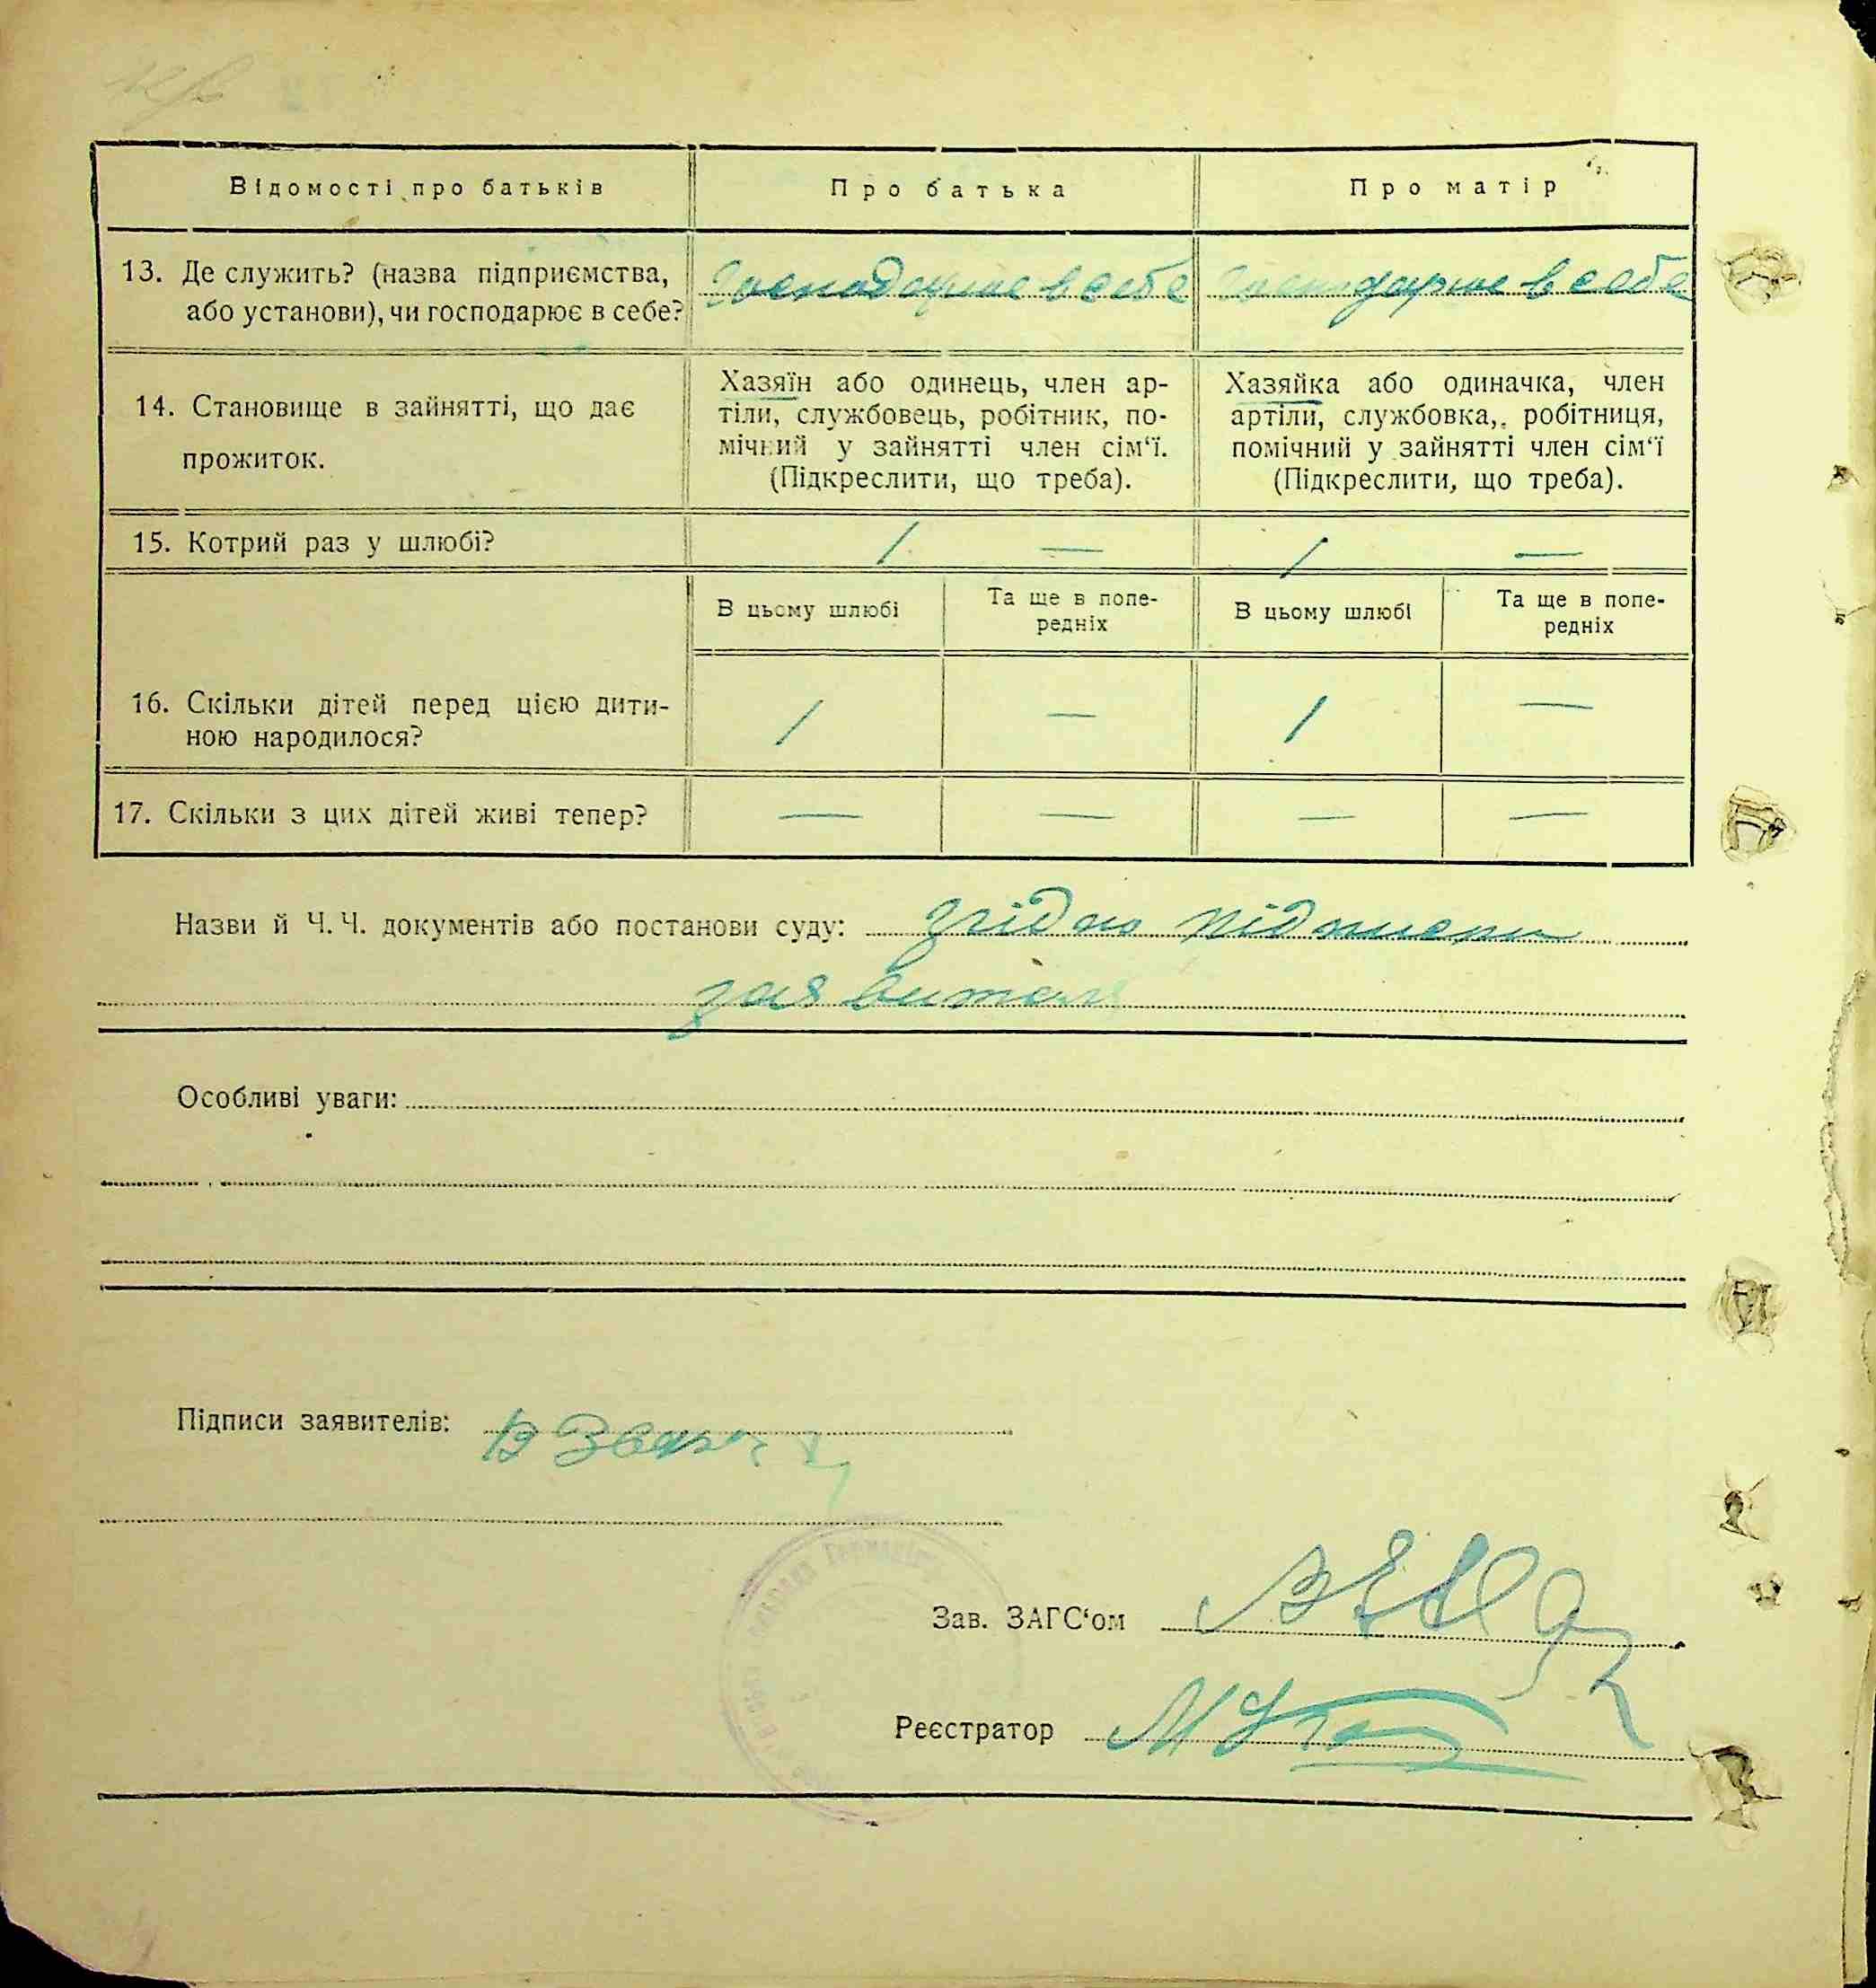 Відомості про батьків
Про батька
Про матір
13. Де служить? (назва підприємства,
або установи), чи господарює в себе?
господарює в себе
господарює в себе
14. Становище в зайнятті, що дає
прожиток.
Хазяїн або одинець, член ар-
тіли, службовець, робітник, по-
мічний у зайнятті член сім‘ї.
(Підкреслити, що треба).
Хазяйка або одиначка, член
артіли, службовка, робітниця,
помічний у зайнятті член сім‘ї
(Підкреслити, що треба).
15. Котрий раз у шлюбі?
1 — 1 —
В цьому шлюбі
Та ще в попе-
редніх
В цьому шлюбі
Та ще в попе-
редніх
16. Скільки дітей перед цією дити-
ною народилося?
1 — 1 —
17. Скільки з цих дітей живі тепер?
— — — —
Назви й Ч. Ч. документів або постанови суду: згідно підписки
заявителя
Особливі уваги:
Підписи заявителів:
Зав. ЗАГС‘ом
Реєстратор